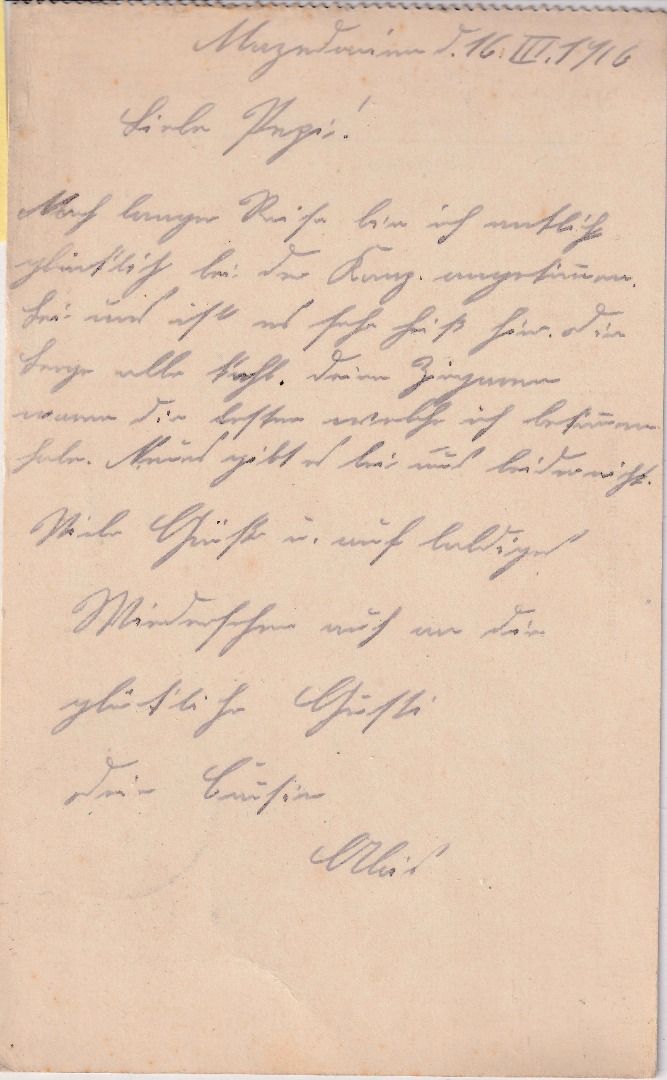 Mazedonien d. 16. III. 1916
Liebe Pepi!
Nach langer Reise bin ich entlich
glücklich bei der Komp. angekommen.
Bei uns ist es sehr heiß hir. die
Berge alle kahl. deine Zigaren
waren die besten welche ich bekommen
habe. Neues gibt es bei uns leider nicht.
Viele Grüße u. auf baldiges
Wiedersehen auch an die
glückliche Gusti
dein Cusin
Alois